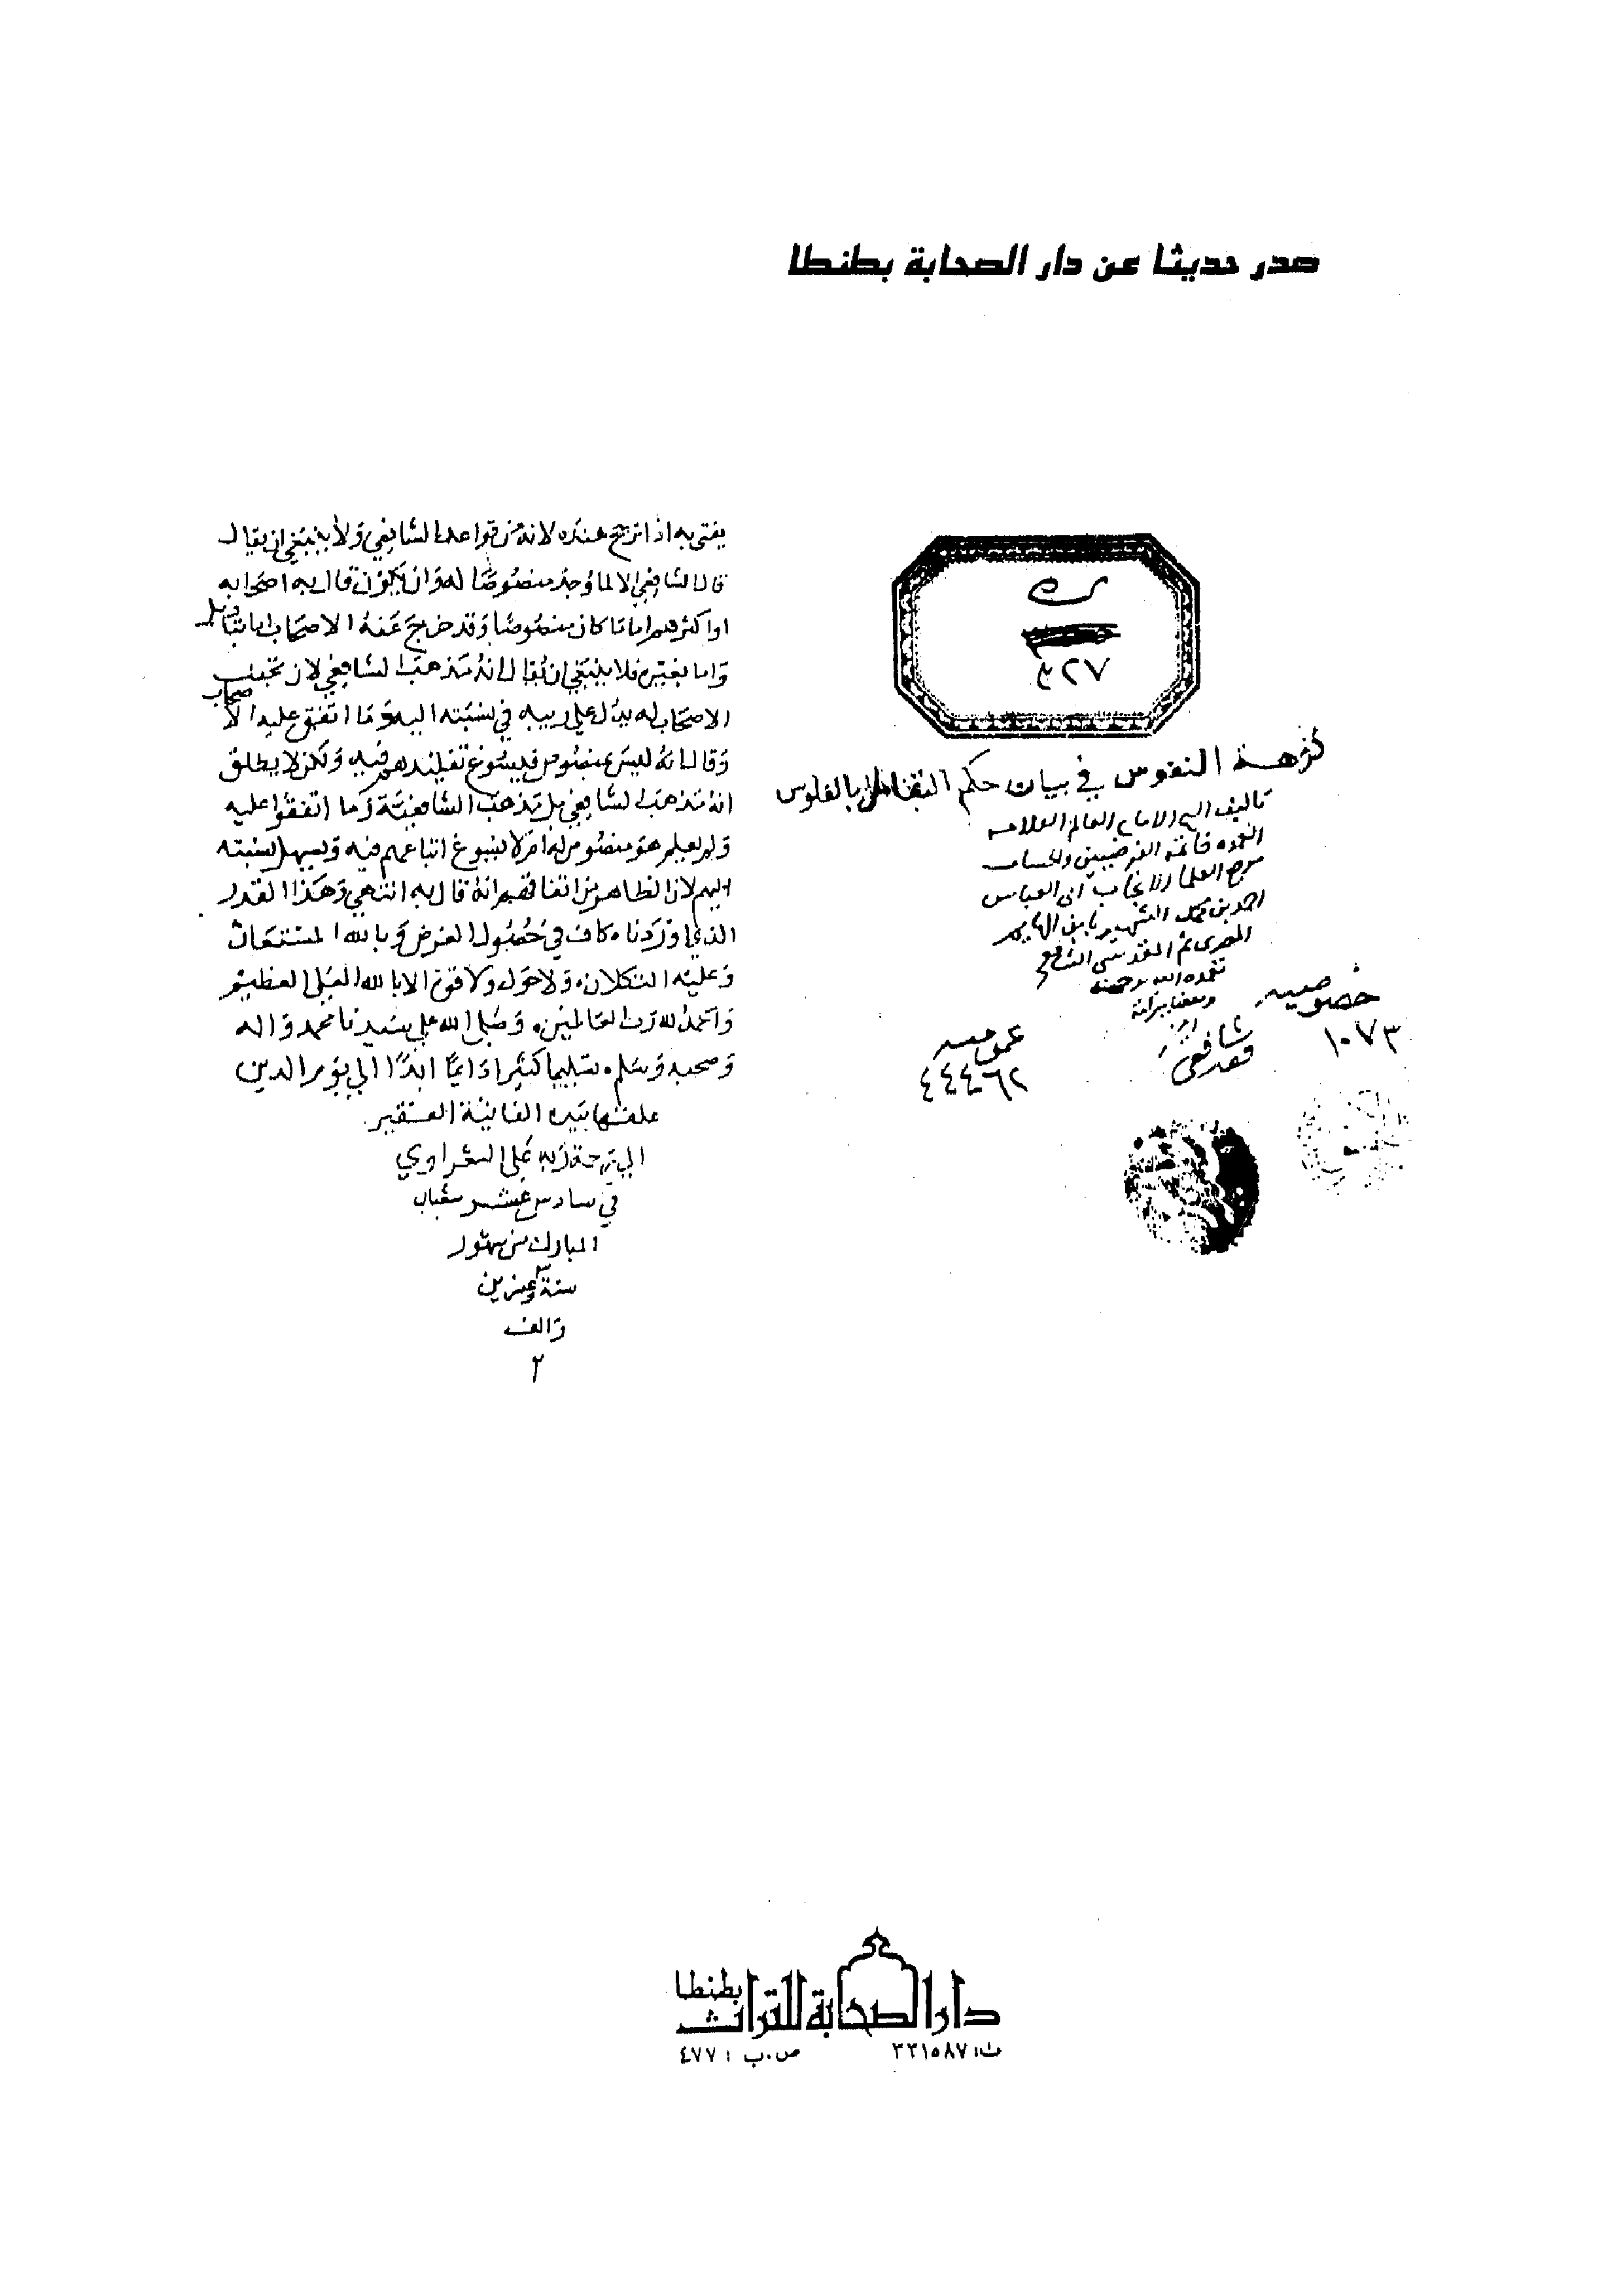 صدر حديثا عن دار الصحابة بطنطا
٤٢٧
نزهة النفوس في بيان حكم التعامل بالفلوس
تاليف الشيخ الامام العالم العلامه
العمده خاتمة الفرضيين والحساب
مرجع العلما والانجاب ابى العباس
احمد بن محمد الشهير بابن الهايم
المصرى ثم المقدسى الشافعى
تغمده الله برحمته
خصوصيه
١٠٧٣
فقه شافعى
عموميه
٤٤٤٦٢
يفتى به اذا ترجح عنده لانه من قواعد الشافعي ولا ينبغي ان يقال
قال الشافعي الا لما وجد منصوصا له وان يكون قال به اصحابه
او اكثرهم اما ما كان منصوصا وقد خرج عنه الاصحاب اما بتاويل
واما بغيره فلا ينبغي ان يقال انه مذهب الشافعي لان تجنب
الاصحاب له يدل على ريبه في نسبته اليه وما اتفق عليه الاصحاب
وقالوا انه ليس بمنصوص فيسوغ تقليدهم فيه ولكن لا يطلق
انه مذهب الشافعي بل مذهب الشافعية وما اتفقوا عليه
ولم يعلم هو منصوص له ام لا يسوغ اتباعهم فيه ويسهل نسبته
اليه لان الظاهر من اتفاقهم انه قال به انتهي وهذا القدر
الذي اوردناه كاف في حصول الغرض وبالله المستعان
وعليه التكلان ولا حول ولا قوة الا بالله العلى العظيم
والحمد لله رب العالمين وصلى الله على سيدنا محمد واله
وصحبه وسلم تسليما كثيرا دايما ابدا الي يوم الدين
علقها بيده الفانية الفقير
الي رحمة ربه على الشعراوي
في سادس عشر شعبان
المبارك من شهور
سنة وعشرين
والف
٢
دار الصحابة للتراث بطنطا
ت: ٣٣١٥٨٧ ص.ب: ٤٧٧